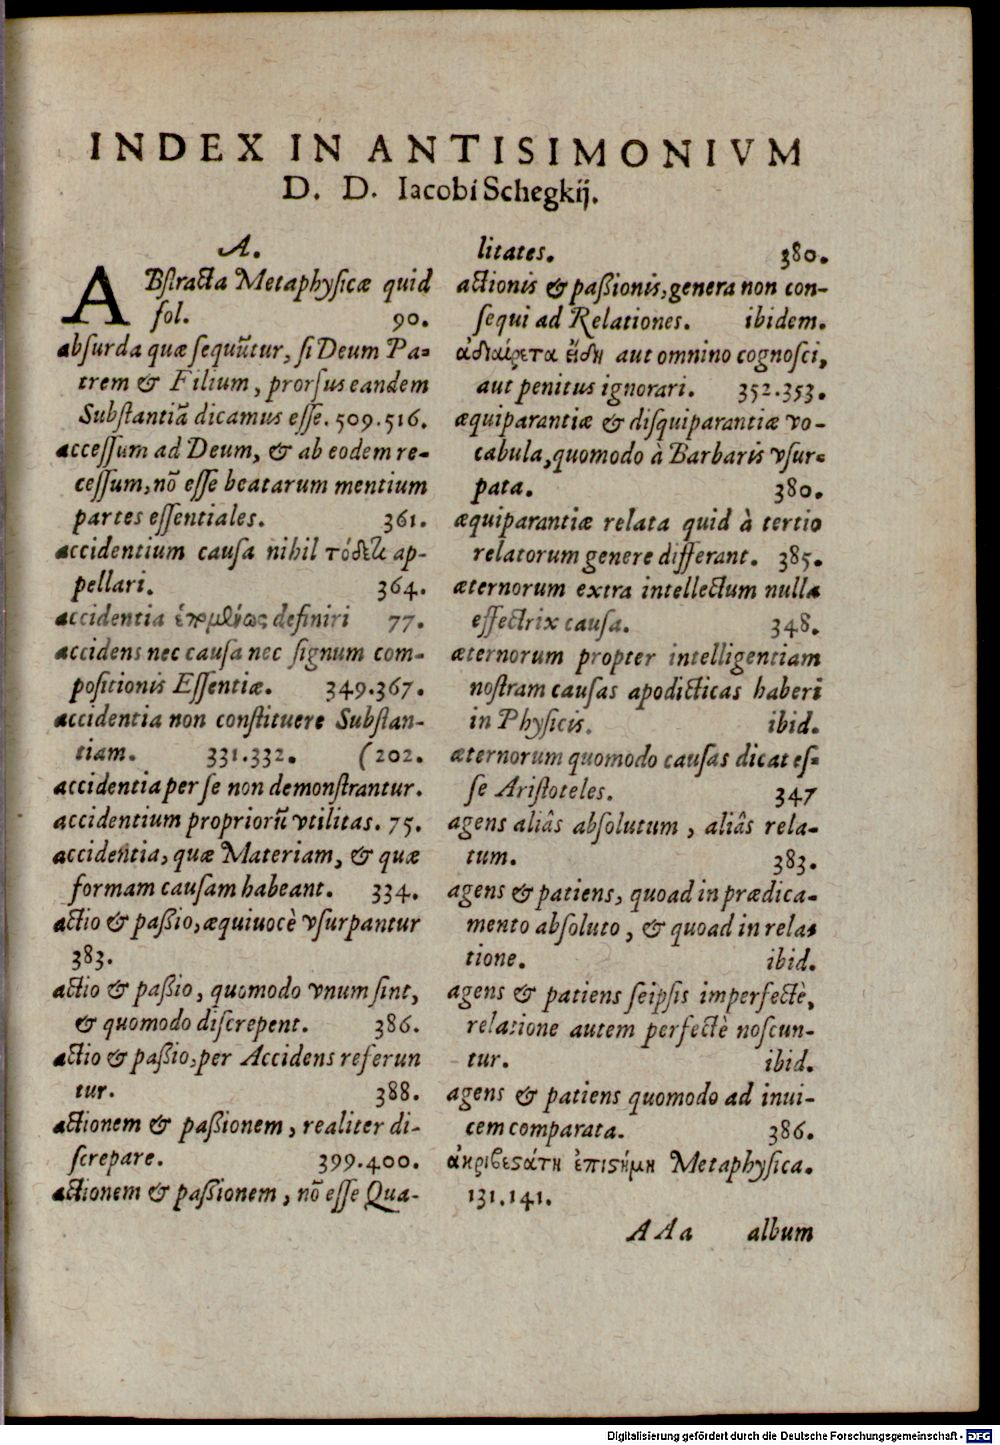 INDEX IN ANTISIMONIVM
D. D. Iacobi Schegkij.
A.
ABſtracta Metaphyſicæ quid
fol. 90.
abſurda quæ ſequũtur, ſi Deum Pa=
trem & Filium, prorſus eandem
Subſtantiã dicamus eſſe. 509.516.
acceſſum ad Deum, & ab eodem re-
ceſſum, nõ eſſe beatarum mentium
partes eſſentiales. 361.
accidentium cauſa nihil τόδε τι ap-
pellari. 364.
accidentia definiri 77.
accidens nec cauſa nec ſignum com-
poſitionis Eſſentiæ. 349.367.
accidentia non conſtituere Subſtan-
tiam. 331.332. (202.
accidentia per ſe non demonſtrantur.
accidentium propriorũ vtilitas. 75.
accidentia, quæ Materiam, & quæ
formam cauſam habeant. 334.
actio & paßio, æquiuocè vſurpantur
383.
actio & paßio, quomodo vnum ſint,
& quomodo diſcrepent. 386.
actio & paßio, per Accidens referun
tur. 388.
actionem & paßionem, realiter di-
ſcrepare. 399.400.
actionem & paßionem, nõ eſſe Qua-
litates. 380.
actionis & paßionis, genera non con-
ſequi ad Relationes. ibidem.
ἀδιαίρετα εἴδη aut omnino cognoſci,
aut penitus ignorari. 352.353.
æquiparantiæ & diſquiparantiæ vo-
cabula, quomodo à Barbaris vſur=
pata. 380.
æquiparantiæ relata quid à tertio
relatorum genere differant. 385.
æternorum extra intellectum nulla
effectrix cauſa. 348.
æternorum propter intelligentiam
noſtram cauſas apodicticas haberi
in Phyſicis. ibid.
æternorum quomodo cauſas dicat eſ=
ſe Ariſtoteles. 347
agens aliâs abſolutum, aliâs rela-
tum. 383.
agens & patiens, quoad in prædica-
mento abſoluto, & quoad in rela=
tione. ibid.
agens & patiens ſeipſis imperfectè,
relatione autem perfectè noſcun-
tur. ibid.
agens & patiens quomodo ad inui-
cem comparata. 386.
ἀκριβεϛάτη ἐπιϛήμη Metaphyſica.
131.141.
AAa album
Digitalisierung gefördert durch die Deutsche Forschungsgemeinschaft - DFG